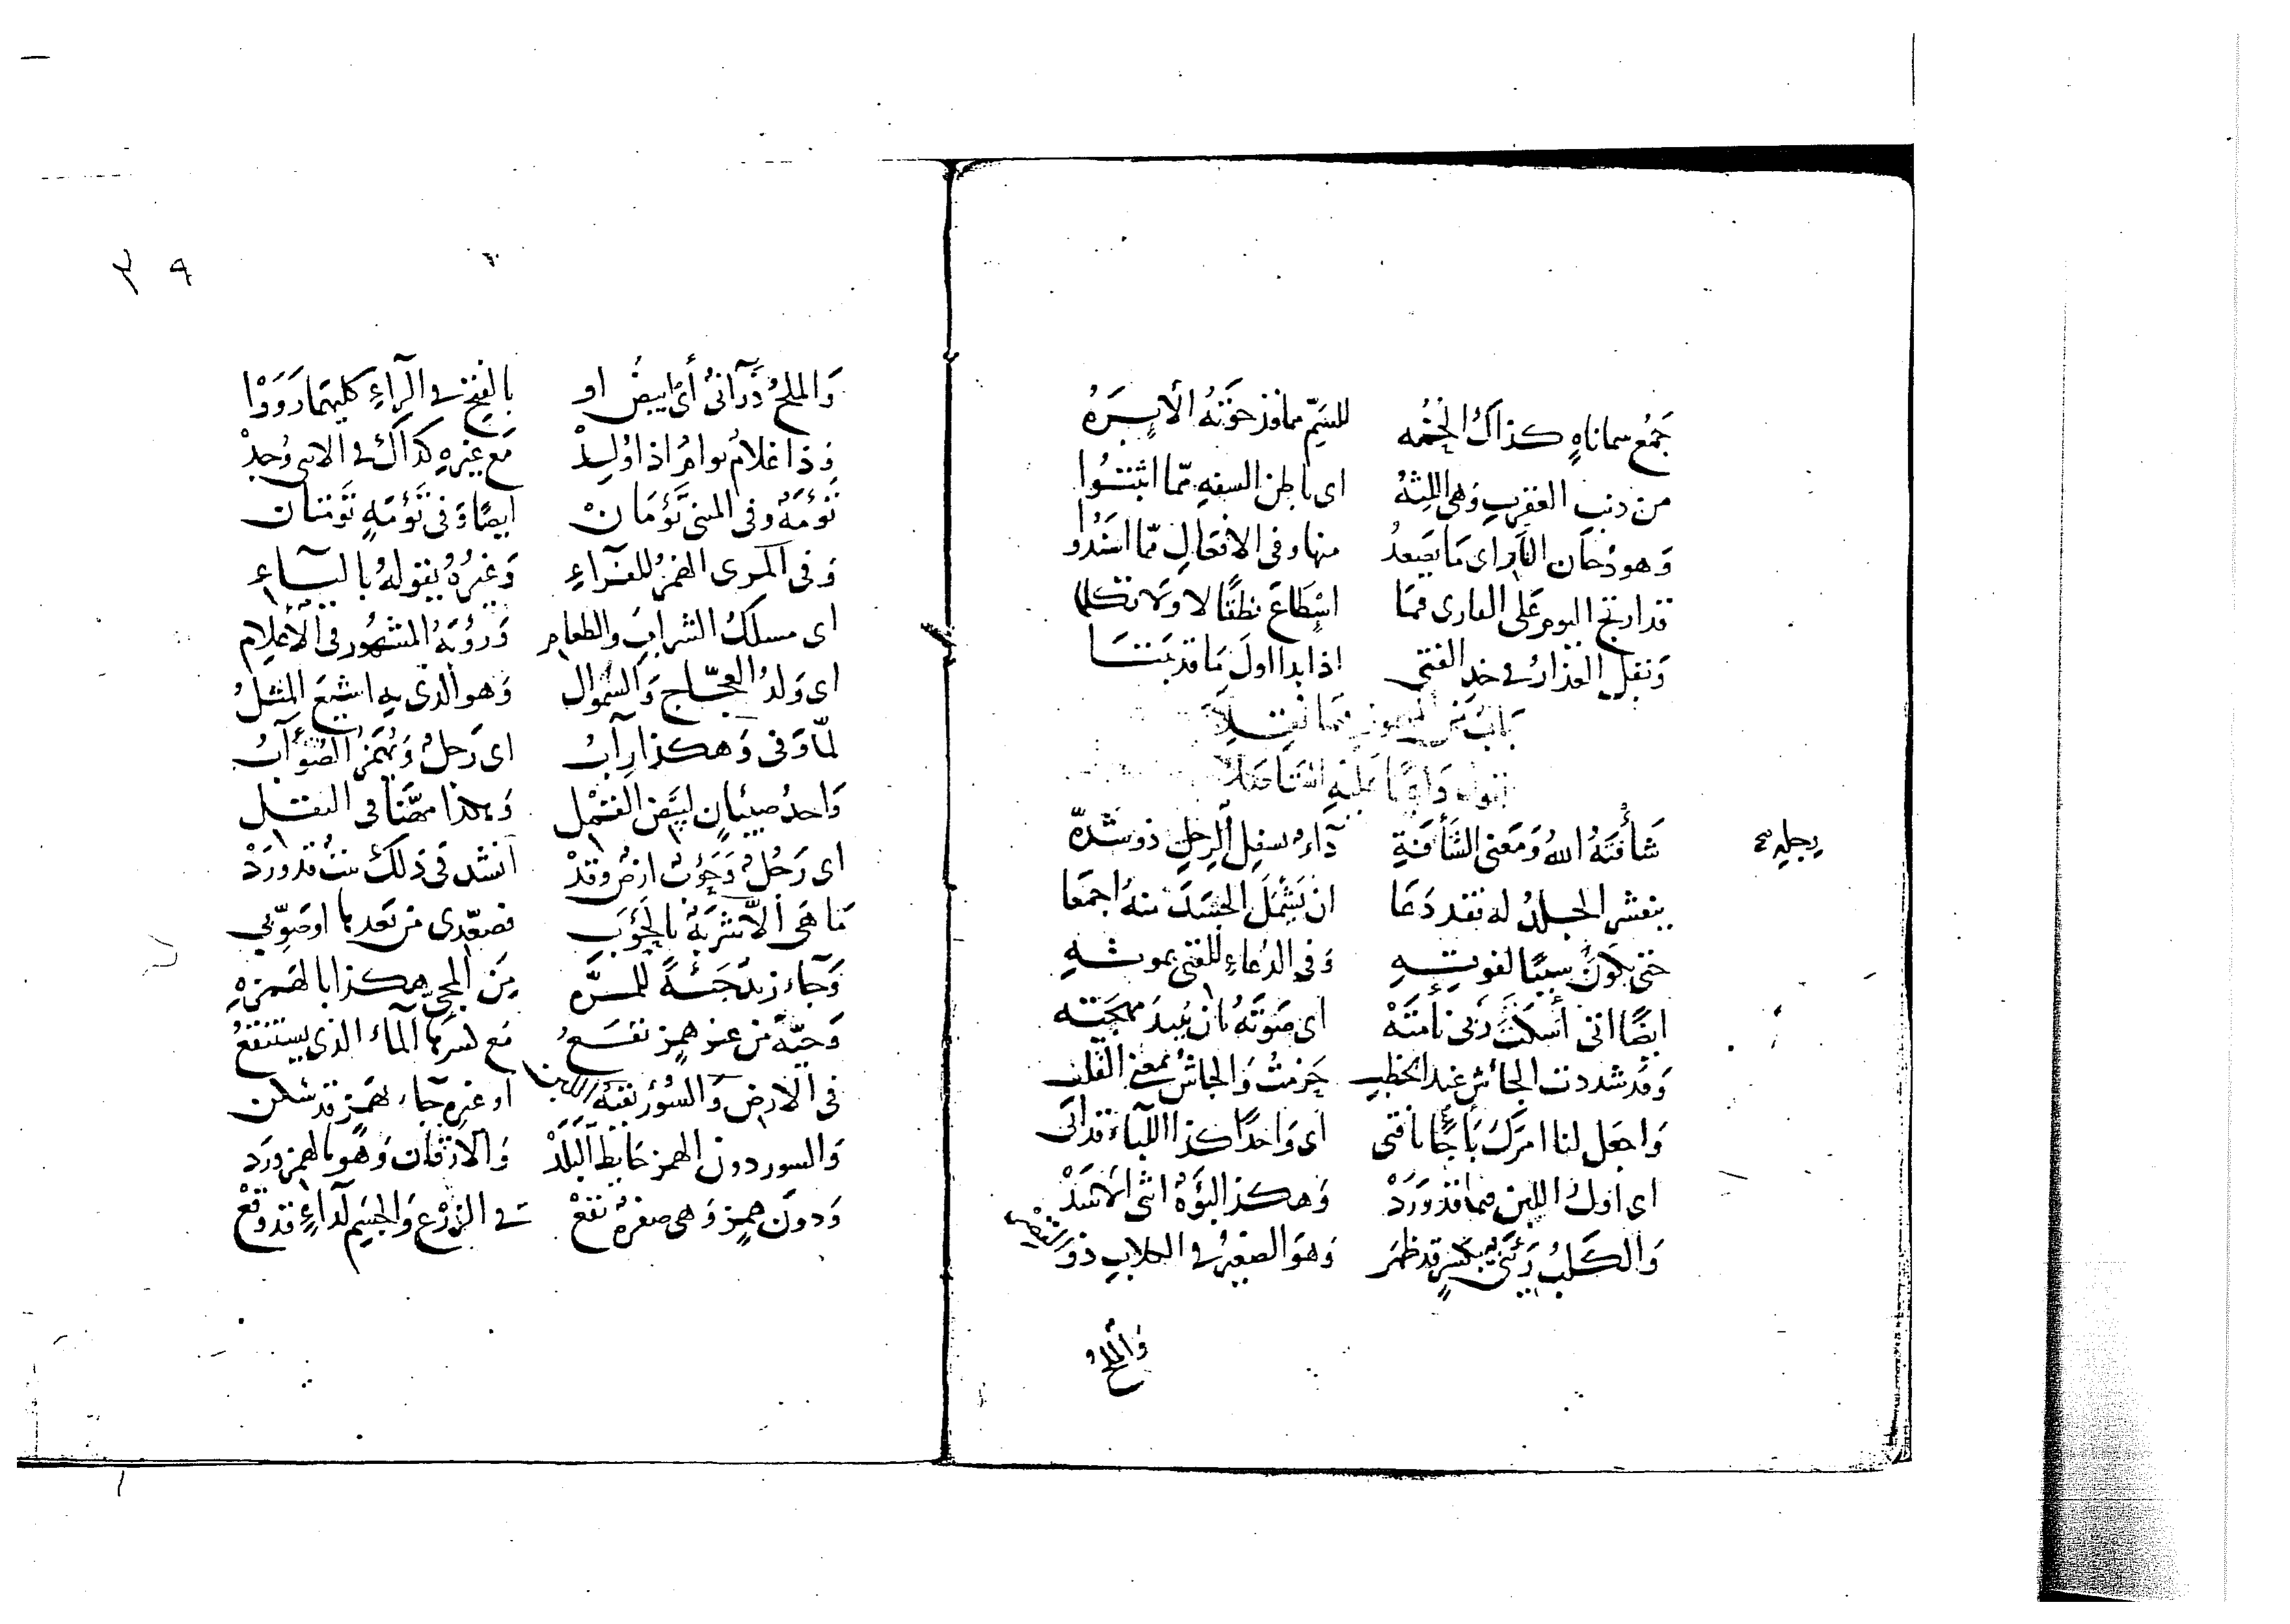 جَمْعُ سماناهٍ كذاك الحُمُه للسَمِّ مما قد حوَتْهُ الأبِرَهُ
من ذنب العقرب وَهى اللِثهُ اى باطن السفهِ ممّا اثبتُوا
وَهو دُخان النار اى مَا يصَعدُ منها وفى الافعال ممّا اسَنَدُوا
قد ارتج اليوم عَلى القارى فمَا اسْطاعَ نطقًا لا وَلا تكلما
وَبقل العذارُ فى خد الفتى اذا بدا اول مَا قد نبتَا
بَابُ
شَأفَتَهُ اللهُ وَمَعنى الشَأفَةِ دَآءٌ بسفل الرجلِ ذو شدّه
برجله صح
حتى يكونَ سببًا لفوتهِ وَفى الدُعَاءِ للفتى بموتهِ
ايضًا اتى أسكتَ رَبى نأمَتَهْ اى صَوتَهُ بان يُبيدَ مهجَته
وَقد شددت الجأش عند الخطبِ حَزمتُ وَالجأش بمعنى القلب
وَاجعَل لنا امرَك بَأجًا يا فتى اى وَاحدًا كذا اللّباءُ قد اتى
اى اول اللبن فيما قد وَرَدْ وَهكذا لبؤَةٌ انثى الاسَدْ
وَالكلبُ زِئنىٌّ بكسرٍ قد ظهَر وَهوَ الصغيرُ فى الكلابِ ذو القصر
وَالملحُ
٣٩
وَالملحُ ذَرآنىٌّ أى ابيضُ او بالفتح فى الرآءِ كليهمَا رَوَوْا
وَذا غلامٌ توامٌ اذا وُلِدْ مَع غيرهِ كذاك فى الانثى وُجدْ
تؤمَةٌ وفى المثنى تَوْءَمَانْ ايضًا وَفى تَؤمَةٍ تَوْءَمتان
وَفى المرى الهمزُ للفرّاءِ وَغيرُهُ يقولهُ باليآءِ
اى مسلكُ الشراب وَالطعام وَرؤبَةُ المشهُور فى الأعلام
اى وَلدُ العجّاج وَالسّموال وَهو الذى به اشيعَ المثلُ
لمّا وَفى وَهكذا رِآبُ اى رَجلٌ وَيُهمَزُ الصُؤآبُ
وَاحدُ صيبانٍ لبَيض القمْل
اى رَجُلٌ وَجَؤبٌ ارضٌ وقدْ انشد فى ذلك بيتٌ قد وَرَدْ
مَا هَى الّا شربَةٌ بالحَؤبَ فصَعّدى من بَعدها اوصَوّبى
وَجآء زيد جَيئةً للمرّه مِنَ المجىِّ هكذا بالهَمزهِ
وَجيَّة من غير همزٍ تقَعُ مَع كسرها المآء الذى يستنقعُ
فى الارض وَالسُؤرُ بقيّةُ اللبن او غيرهِ جآء بهَمزٍ قد سُكن
وَالسور دون الهمز حَايط البَلَدْ وَالارَقان وَهو بالهمز وَرَد
وَدونَ همزٍ وَهى صفرةٌ تقعْ فى الزَرْع وَالجسم لدآءٍ قد وَقعْ